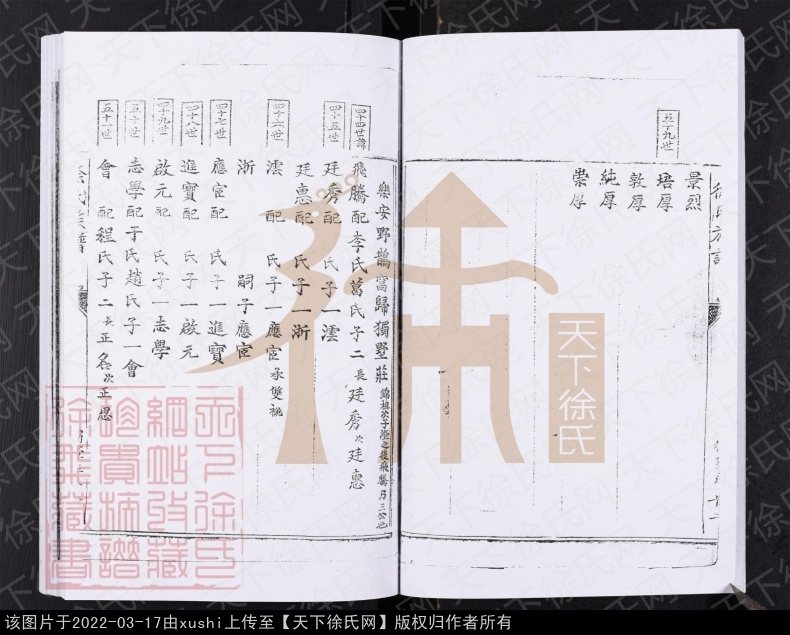 五十九世
景烈
培厚
敦厚
純厚
崇厚
徐氏族譜
樂安野鵲窩歸獨墅莊 錦祖次子澄之後飛騰乃三公也
四十四世諱
飛騰配李氏葛氏子二長廷秀次廷惠
四十五世
廷秀配 氏子一澐
廷惠配 氏子一浙
四十六世
澐 配 氏子一應宦承雙祧
浙 嗣子應宦
四十七世
應宦配 氏子一進寶
四十八世
進寶配 氏子一啟元
四十九世
啟元配 氏子一志學
五十世
志學配于氏趙氏子一會
五十一世
會 配程氏子二長正名次正恩
天下徐氏
天下徐氏
網站收藏
珍貴族譜
徐飛藏書
天下徐氏网
该图片于2022-03-17由xushi上传至【天下徐氏网】版权归作者所有